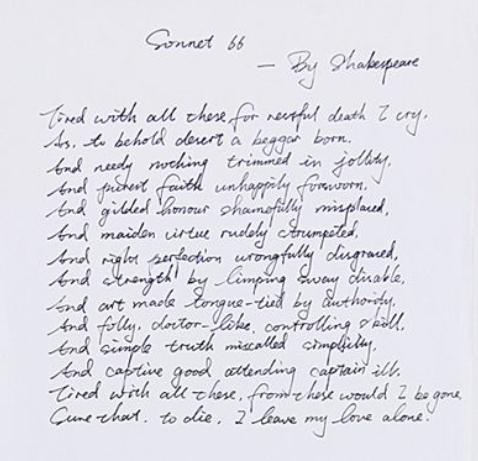 Sonnet 66
— By Shakespeare
Tired with all these for restful death I cry.
As. to behold desert a beggar born.
And needy nothing trimmed in jollity,
And purest faith unhappily forsworn.
And gilded honour shamefully misplaced,
And maiden virtue rudely strumpeted,
And right perfection wrongfully disgraced,
And strength by limping sway disable,
And art made tongue-tied by authority.
And folly. doctor-like. controlling skill.
And simple truth miscalled simplicity.
And captive good attending captain ill.
Tired with all these, from these would I be gone.
that. to die. I leave my love alone.